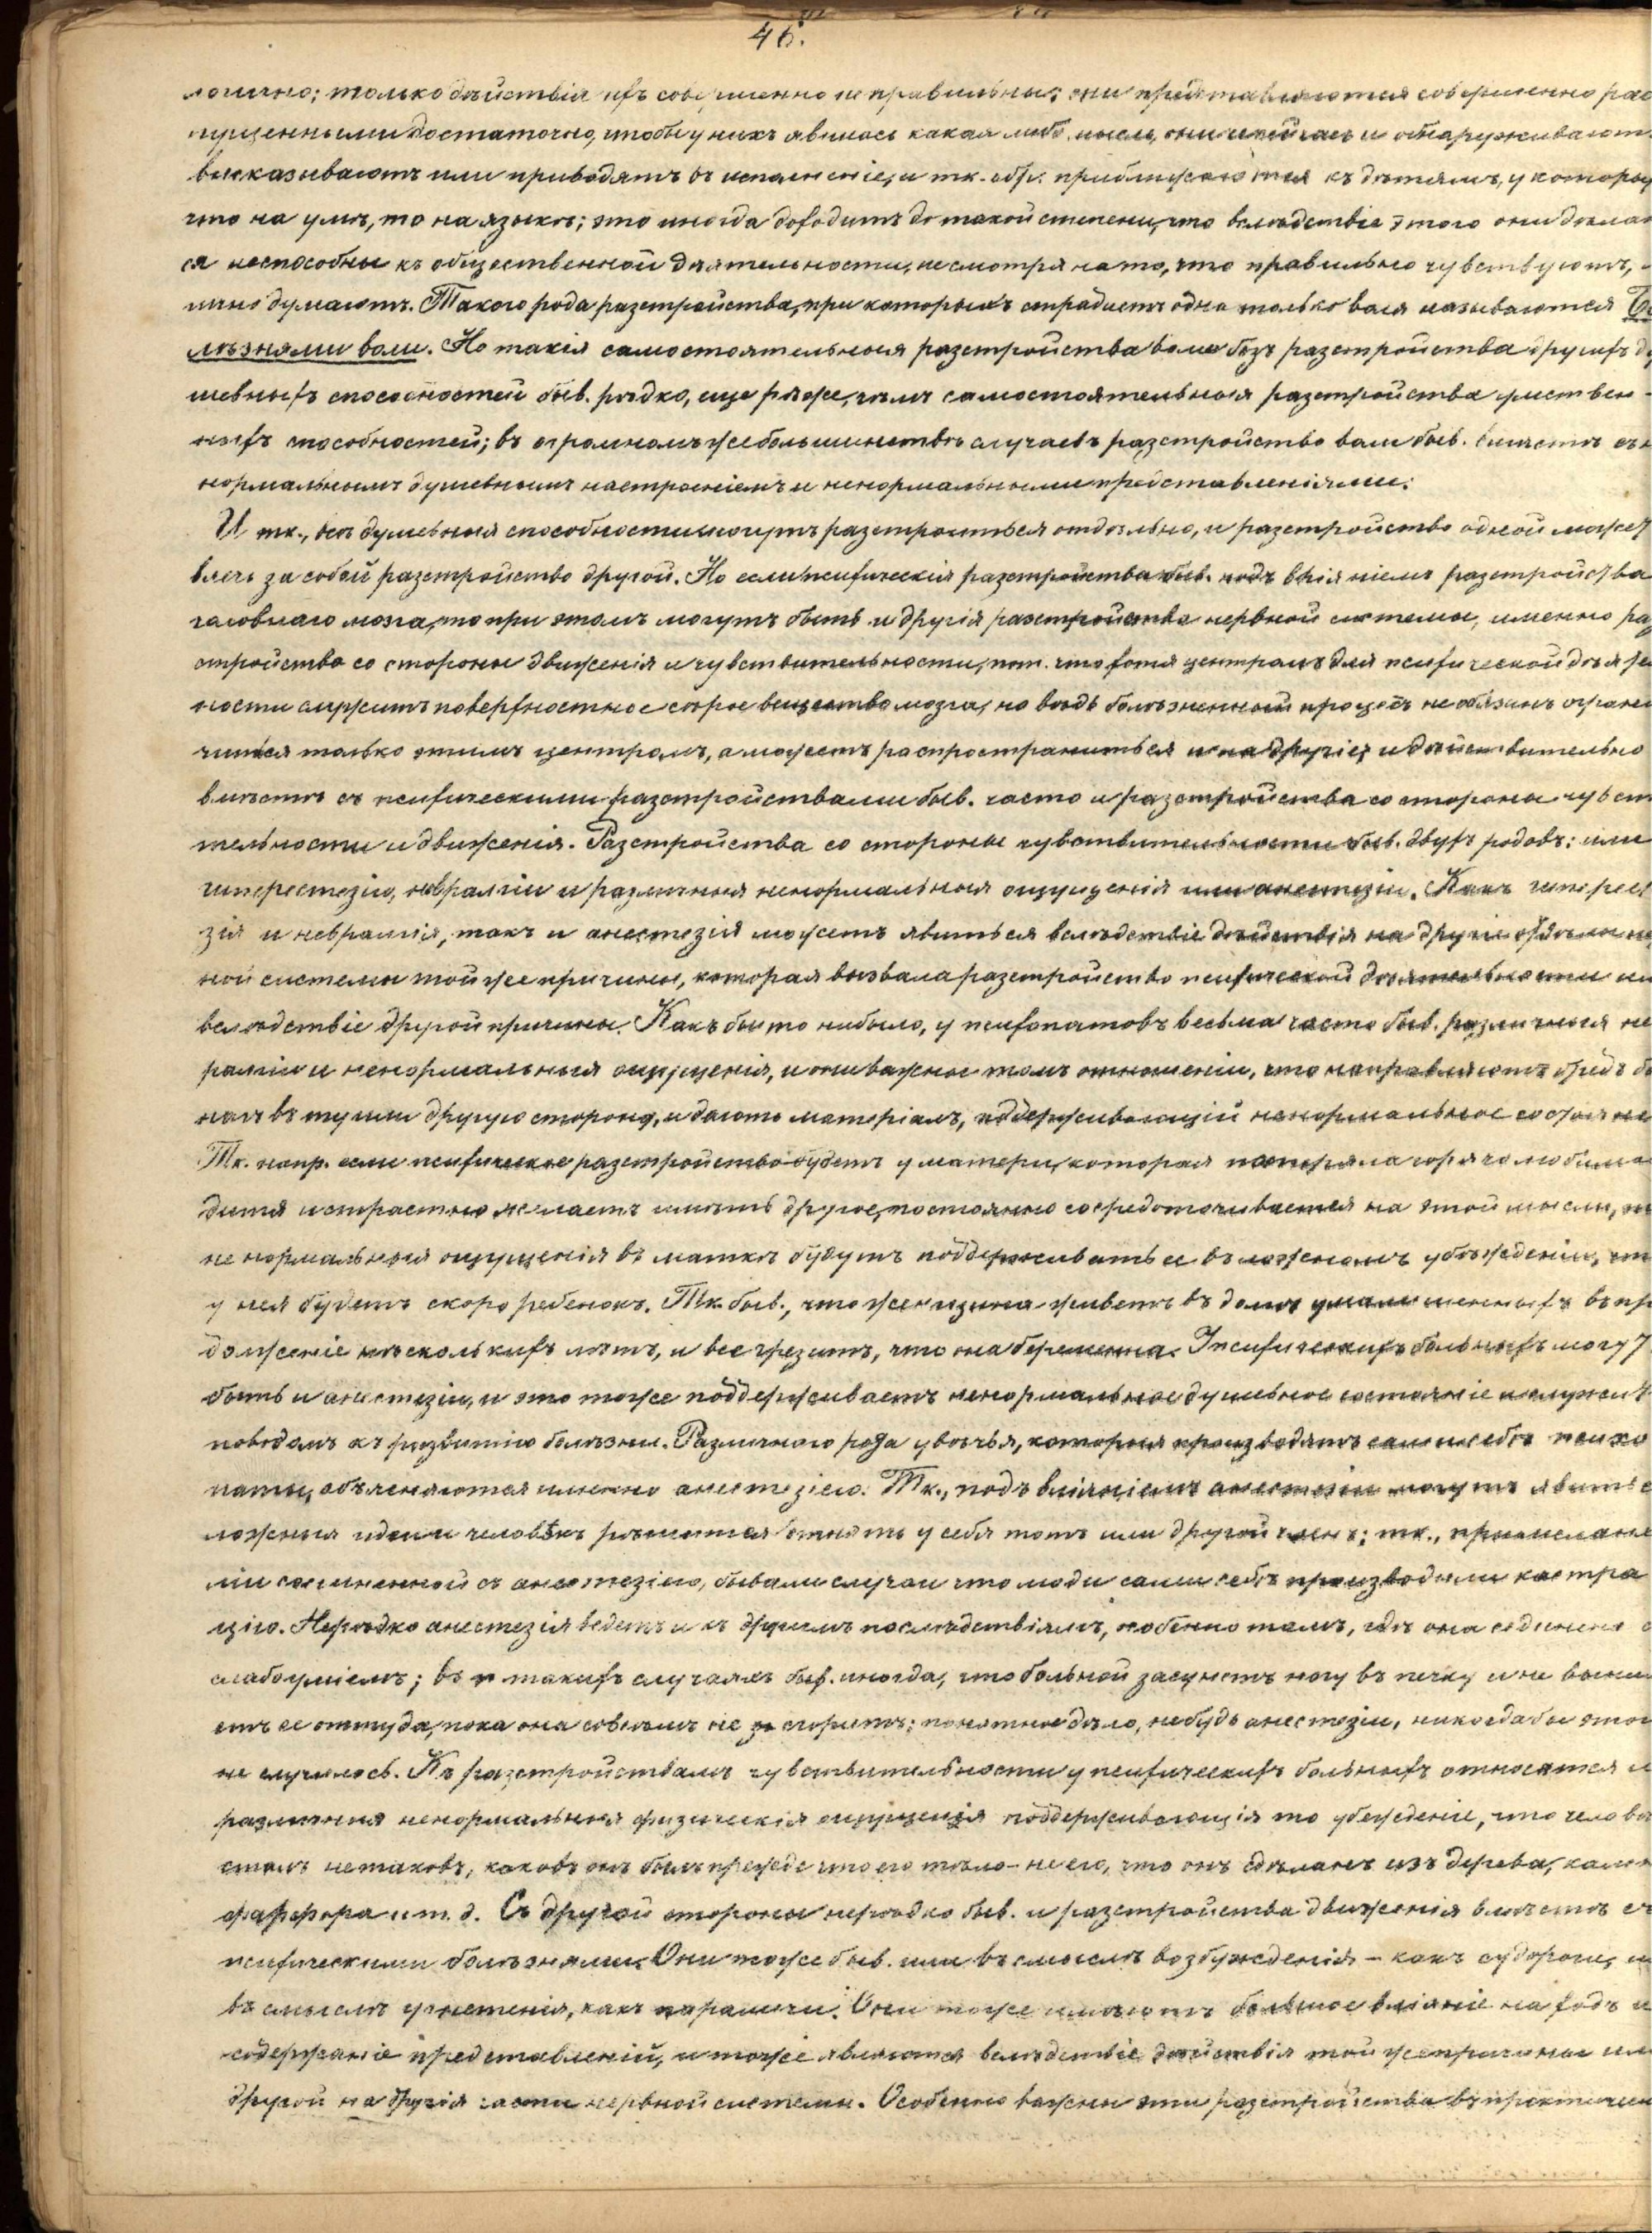 46.
логично; только дѣйствія ихъ совершенно не правильны; они представляются совершенно рас
пущенными достаточно, чтобы у нихъ явилась какая либо мысль, они сейчасъ и обнаруживаютъ
высказываютъ или приводятъ въ исполненіе, и тк. обр. приближаются къ дѣтямъ, у которы
что на умѣ, то на языкѣ; это иногда доходитъ до такой степени, что вслѣдствіе этого они дѣлаю
ся неспособны къ общественной дѣятельности, не смотря на то, что правильно чувствуютъ,
лично думаютъ. Такого рода разстройства, при которыхъ страдаетъ одна только воля называются Бо
лѣзнями воли. Но такія самостоятельныя разстройства воли безъ разстройства другихъ ду
шевныхъ способностей быв. рѣдко, еще рѣже, чѣмъ самостоятельныя разстройства умствен-
ныхъ способностей; въ огромномъ же большинствѣ случаевъ разстройство воли быв. вмѣстѣ съ н
нормальнымъ душевнымъ настроеніемъ и ненормальными представленіями.
И тк., всѣ душевныя способности могутъ разстроиться отдѣльно, и разстройство одной может
влечь за собой разстройство другой. Но если психическія разстройства быв. подъ вліяніемъ разстройства
головнаго мозга, то при этомъ могутъ быть и другія разстройства нервной системы, именно раз
стройство со стороны движенія и чувствительности, пот. что хотя центромъ для психической дѣяте
ности служитъ поверхностное сѣрое вещество мозга, но вѣдь болѣзненный процессъ не обязанъ ограни
читься только этимъ центромъ, а можетъ распространиться и на другіе; и дѣйствительно
вмѣстѣ съ психическими разстройствами быв. часто и разстройства со стороны чувст
тельности и движенія. Разстройства со стороны чувствительности быв. двухъ родовъ: или
гиперестезію, невралгіи и различныя ненормальныя ощущенія или анестезіи. Какъ гиперест
зія и невралгія, такъ и анестезія можетъ явиться вслѣдствіе дѣйствія на другіе отдѣлы не
ной системы той же причины, которая вызвала разстройство психической дѣятельности ил
вслѣдствіе другой причины. Какъ бы то нибыло, у психопатовъ весьма часто быв. различныя не
ралгіи и ненормальныя ощущенія, и они важное томъ отношеніи, что направляютъ бредъ бо
ныхъ въ ту или другую сторону, и даютъ матеріалъ, поддерживающій ненормальное состояніе
Тк. напр. если психическое разстройство будетъ у матери, которая потеряла горячо любимое
дитя и страстно желаетъ имѣть другое, постоянно сосредоточивается на этой мысли,
не нормальныя ощущенія въ маткѣ будутъ поддерживать ее въ ложномъ убѣжденіи, что
у нея будетъ скоро ребенокъ. Тк. быв., что женщина живетъ въ домѣ умалишенныхъ въ пр
долженіе нѣсколькихъ лѣтъ, и все грезитъ, что она беременна. У психическихъ больныхъ могут
быть и анестезіи, и это тоже поддерживаетъ ненормальное душевное состояніе и служит
поводомъ къ развитію болѣзни. Различнаго рода увѣчья, которыя производятъ сами себѣ психо
паты, объясняются именно анестезіею. Тк., подъ вліяніемъ анестезіи могутъ явиться
ложныя идеи и человѣкъ рѣшится отнять у себя тотъ или другой членъ; тк., при меланхо
ліи соединенной съ анестезіею, бывали случаи что люди сами себѣ производили кастра
цію. Нерѣдко анестезія ведетъ и къ другимъ послѣдствіямъ, особенно тамъ, гдѣ она соединена с
слабоуміемъ; въ такихъ случаяхъ быв. иногда, что больной засунетъ ногу въ печку и не выни
етъ ее оттуда, пока она совсѣмъ не сгоритъ; понятное дѣло, небудь анестезіи, никогда бы этог
не случилось. Къ разстройствамъ чувствительности у психическихъ больныхъ относятся и
различныя ненормальныя физическія ощущенія поддерживающія то убѣжденіе, что человѣ
сталъ не таковъ, каковъ онъ былъ прежде что его тѣло – не его, что онъ сдѣланъ изъ дерева, камн
фарфора и т. д. Съ другой стороны нерѣдко быв. и разстройства движенія вмѣстѣ съ
психическими болѣзнями. Они тоже быв. или въ смыслѣ возбужденія – какъ судороги, и
въ смыслѣ угнетенія, какъ параличи. Они тоже имѣютъ большое вліяніе на ходъ и
содержаніе представленій, и тоже являются вслѣдствіе дѣйствія той же причины ил
другой на другія части нервной системы. Особенно важны эти разстройства въ практичес